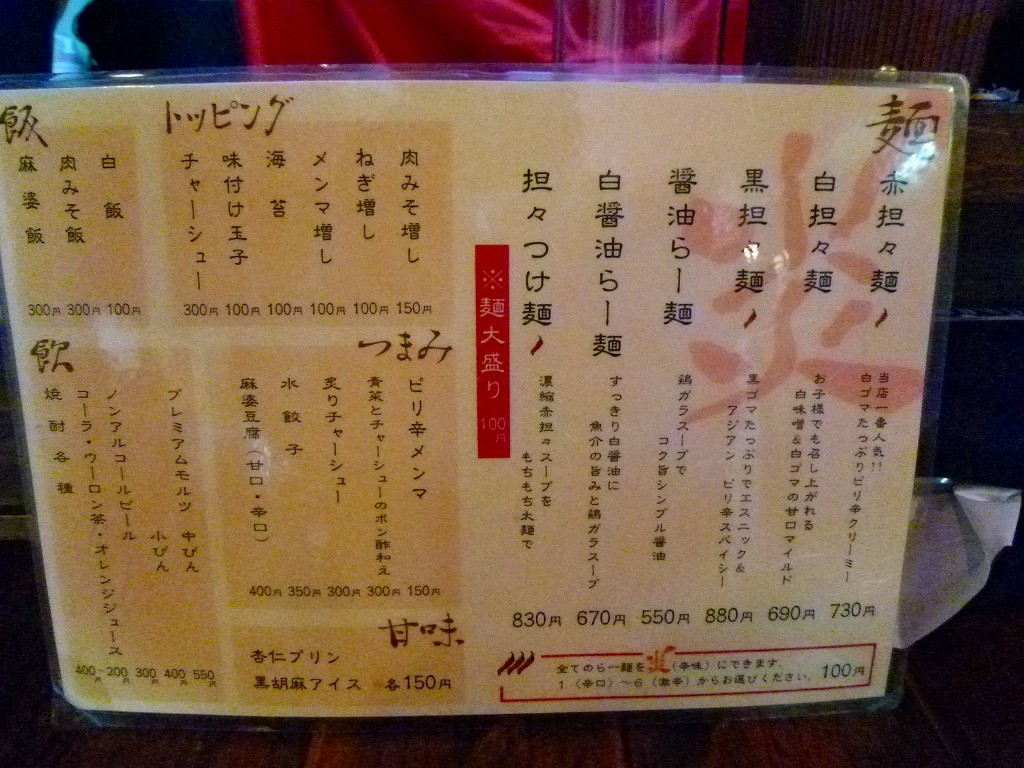 麺
赤担々麺
当店一番人気!!
白ゴマたっぷりピリ辛クリーミー
730円
白担々麺
お子様でも召し上がれる
白味噌&白ゴマの甘口マイルド
690円
黒担々麺
黒ゴマたっぷりでエスニック&
アジアン ピリ辛スパイシー
880円
醤油らー麺
鶏ガラスープで
コク旨シンプル醤油
550円
白醤油らー麺
すっきり白醤油に
魚介の旨みと鶏ガラスープ
670円
担々つけ麺
濃縮赤担々スープを
もちもち太麺で
830円
※麺大盛り 100円
全てのらー麺を (辛味)にできます。
1(辛口)~6(激辛)からお選びください。
100円
トッピング
肉みそ増し 150円
ねぎ増し 100円
メンマ増し 100円
海苔 100円
味付け玉子 100円
チャーシュー 300円
飯
白飯 100円
肉みそ飯 300円
麻婆飯 300円
つまみ
ピリ辛メンマ 150円
青菜とチャーシューのポン酢和え 300円
炙りチャーシュー 300円
水餃子 350円
麻婆豆腐(甘口・辛口) 400円
甘味
杏仁プリン
黒胡麻アイス 各150円
飲
プレミアムモルツ 中びん 550円
小びん 400円
ノンアルコールビール 300円
コーラ・ウーロン茶・オレンジジュース 200円
焼酎各種 400円~